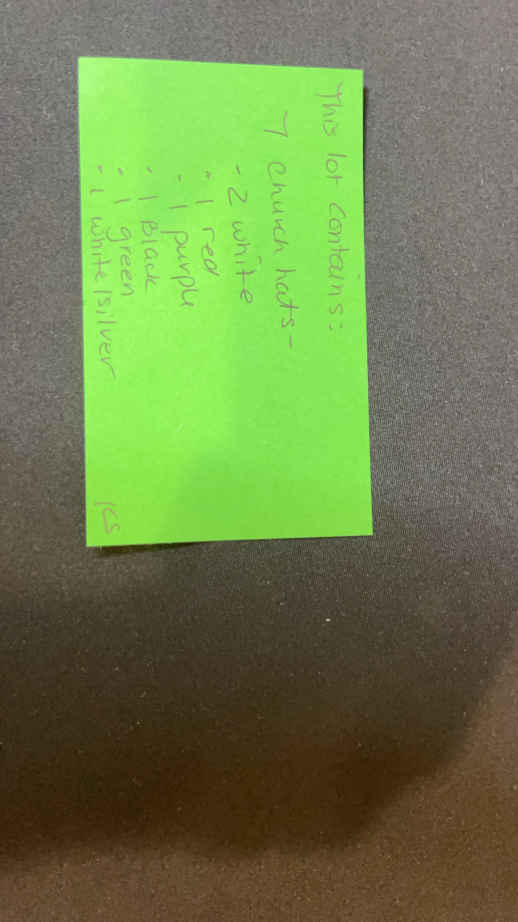 This lot contains:
7 church hats-
- 2 white
- 1 red
- 1 purple
- 1 Black
- 1 green
- 1 white/silver
KS